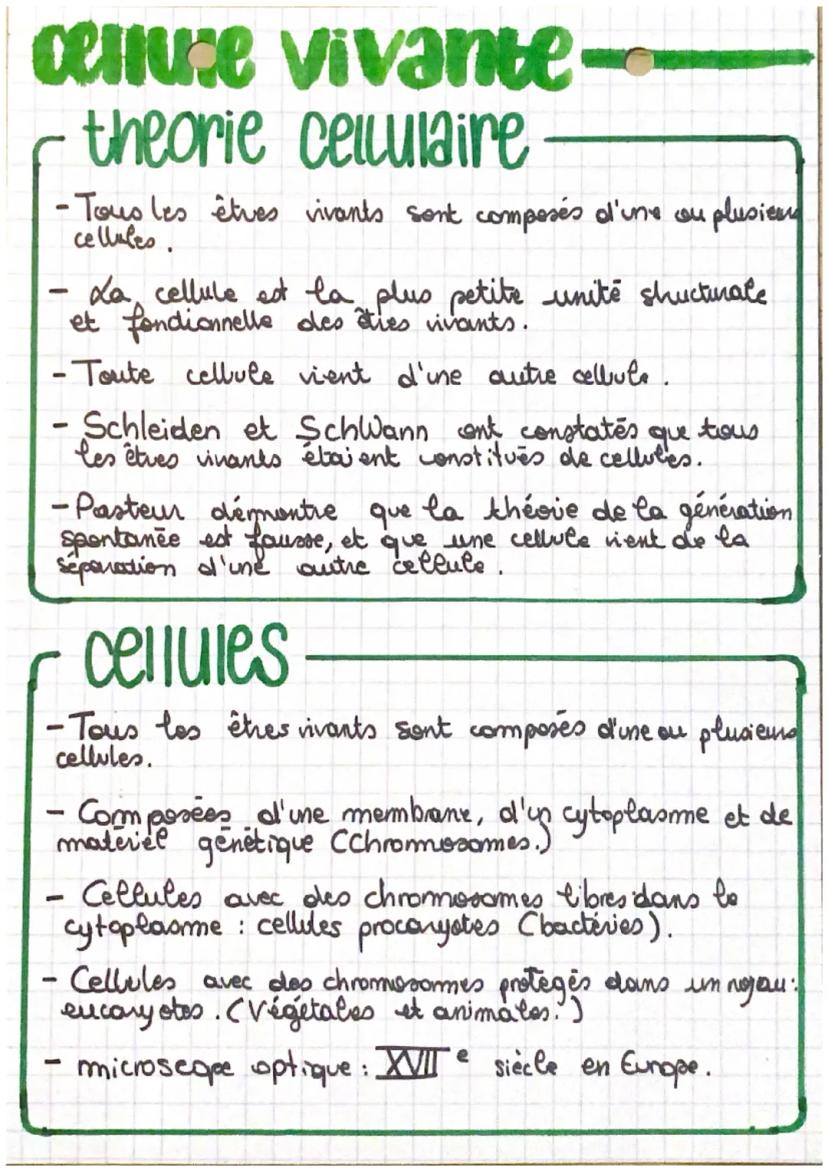 cellule vivante
théorie cellulaire
- Tous les êtres vivants sont composés d'une ou plusieurs
cellules.
- La cellule est la plus petite unité structurale
et fonctionnelle des êtres vivants.
- Toute cellule vient d'une autre cellule.
- Schleiden et SchWann ont constatés que tous
les êtres vivants étaient constitués de cellules.
- Pasteur démontre que la théorie de la génération
spontanée est fausse, et que une cellule vient de la
séparation d'une autre cellule.
cellules
- Tous les êtres vivants sont composés d'une ou plusieurs
cellules.
- Composées d'une membrane, d'un cytoplasme et de
matériel génétique (Chromosomes.)
- Cellules avec des chromosomes libres dans le
cytoplasme : cellules procaryotes (bactéries).
- Cellules avec des chromosomes protégés dans un noyau :
eucaryotes. (Végétales et animales.)
- microscope optique : XVII e siècle en Europe.